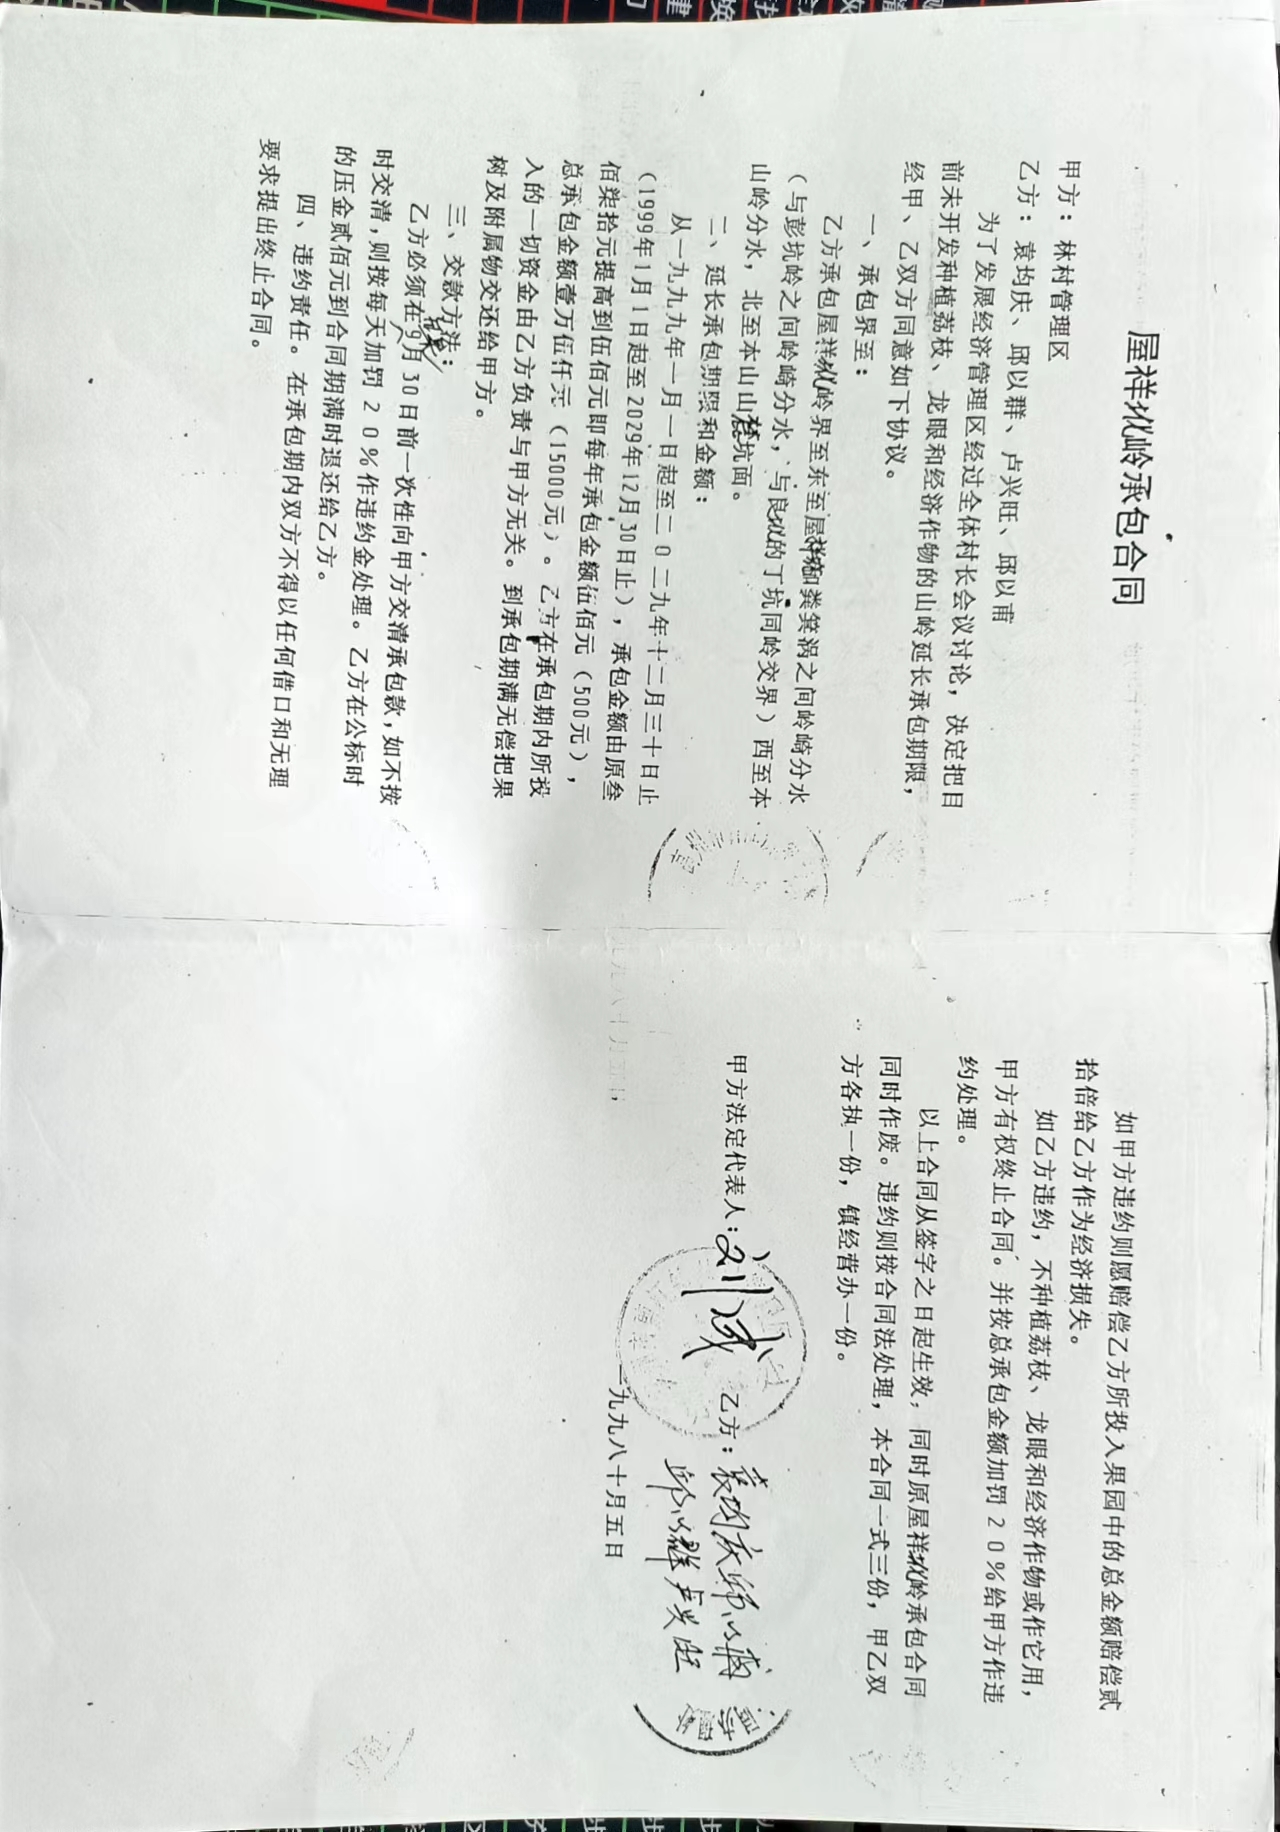 屋祥㘵岭承包合同
甲方：林村管理区
乙方：袁均庆、邱以群、卢兴旺、邱以甫
为了发展经济管理区经过全体村长会议讨论，决定把目
前未开发种植荔枝、龙眼和经济作物的山岭延长承包期限，
经甲、乙双方同意如下协议。
一、承包界至：
乙方承包屋祥岭界至东至屋和粪箕涡之间岭崎分水
（与彭坑岭之间岭崎分水，与良的丁坑同岭交界）西至本
山岭分水，北至本山山坑面。
二、延长承包期限和金额：
从一九九九年一月一日起至二0二九年十二月三十日止
（1999年1月1日起至2029年12月30日止），承包金额由原叁
佰柒拾元提高到伍佰元即每年承包金额伍佰元（500元），
总承包金额壹万伍仟元（15000元）。乙方在承包期内所投
入的一切资金由乙方负责与甲方无关。到承包期满无偿把果
树及附属物交还给甲方。
三、交款方法：
乙方必须在9月30日前一次性向甲方交清承包款，如不按
时交清，则按每天加罚20%作违约金处理。乙方在公标时
的压金贰佰元到合同期满时退还给乙方。
四、违约责任。在承包期内双方不得以任何借口和无理
要求提出终止合同。
如甲方违约则愿赔偿乙方所投入果园中的总金额赔偿贰
拾倍给乙方作为经济损失。
如乙方违约，不种植荔枝、龙眼和经济作物或作它用，
甲方有权终止合同。并按总承包金额加罚20%给甲方作违
约处理。
以上合同从签字之日起生效，同时原屋祥岭承包合同
同时作废。违约则按合同法处理，本合同一式三份，甲乙双
方各执一份，镇经营办一份。
甲方法定代表人：刘成 乙方：袁均庆 邱以甫
邱以群 卢兴旺
一九九八十月五日